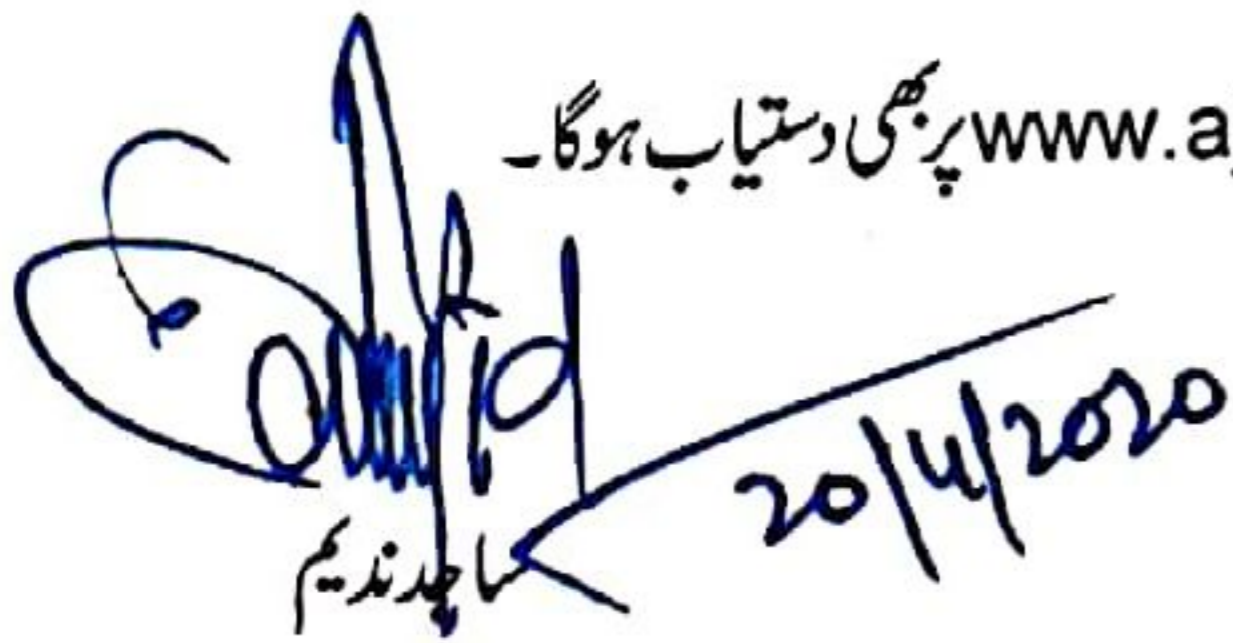 www.a پر بھی دستیاب ہوگا۔
20/4/2020
ساجد ندیم